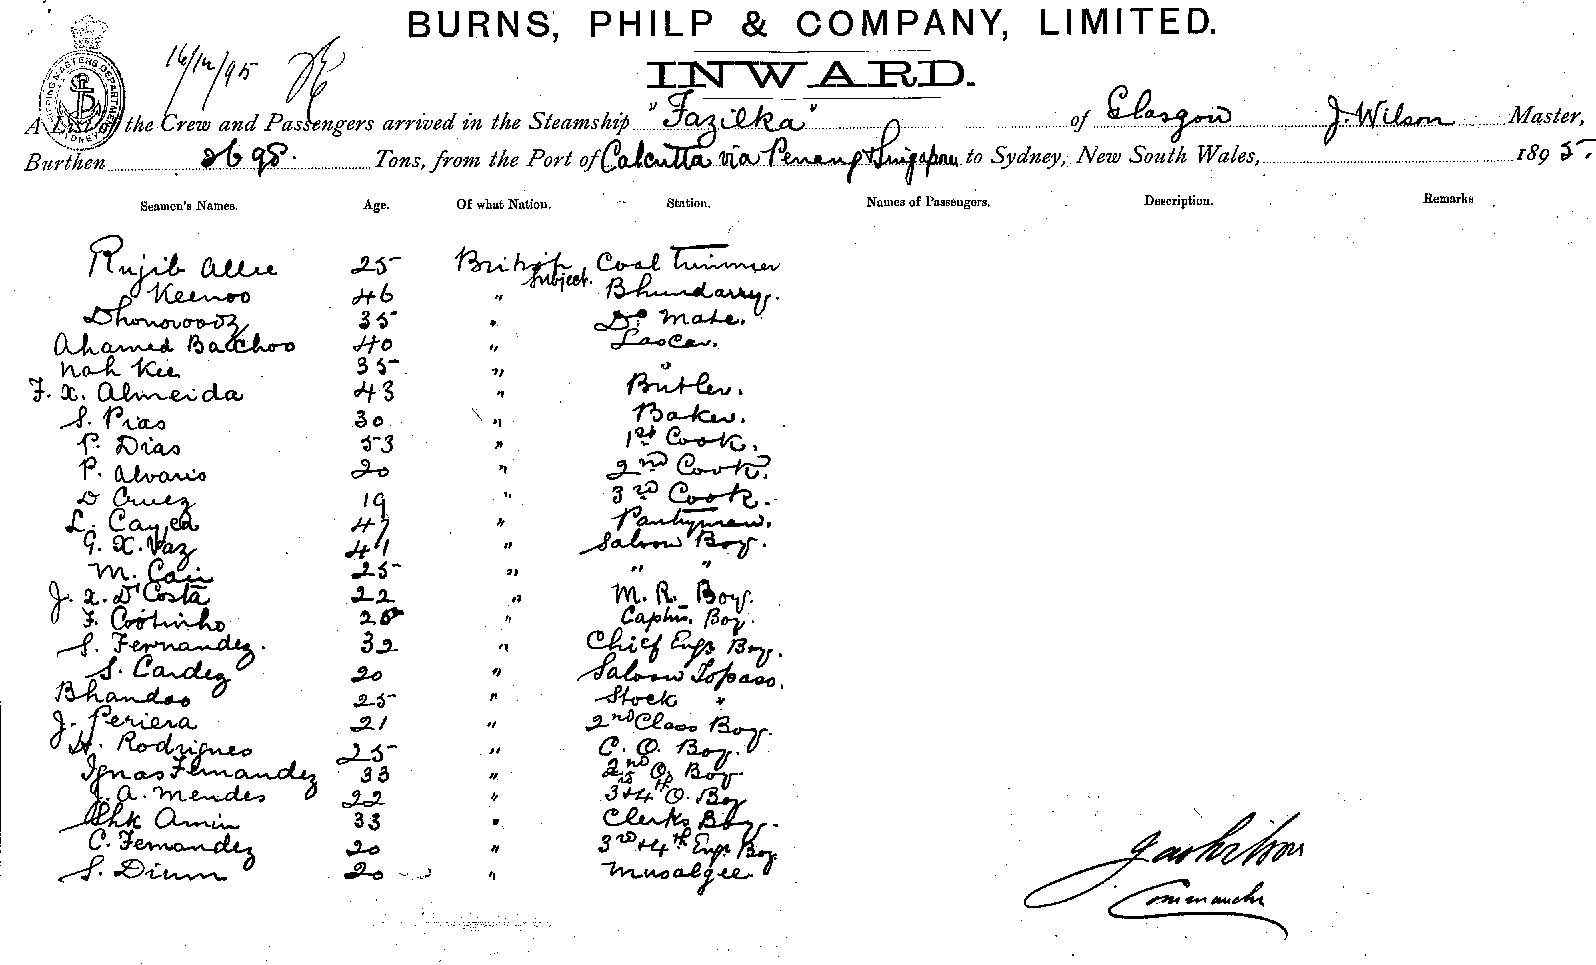 BURNS, PHILP & COMPANY, LIMITED.
16/12/95
INWARD.
A List of the Crew and Passengers arrived in the Steamship "Fazilka" of Glasgow J. Wilson Master,
Burthen 2698. Tons, from the Port of Calcutta via Penang & Singapore to Sydney, New South Wales, 1895.
Seamen's Names. Age. Of what Nation. Station. Names of Passengers. Description. Remarks
Rujib Allie 25 British Subject. Coal Trimmer
Keenoo 46 " Bhundarry.
Dhonoroodz 35 " Do Mate.
Ahamed Bacchoo 40 " Lascar.
Noh Kee 35 " "
F. X. Almeida 43 " Butler.
S. Pias 30 " Baker.
P. Dias 53 " 1st Cook.
P. Alvaris 20 " 2nd Cook.
D Cruez 19 " 3rd Cook.
L. 47 " Pantryman.
G. X. Vaz 41 " Saloon Boy.
M. 25 " " "
J. X. D'Costa 22 " M. R. Boy.
F. Cootinho 25 " Captn. Boy.
S. Fernandez. 32 " Chief Engr Boy.
S. Cardez 20 " Saloon Topass.
Bhandoo 25 " Stock "
J. Periera 21 " 2nd Class Boy.
H. Rodrigues 25 " C. O. Boy.
Ignas Fernandez 33 " 2nd O. Boy
A. Mendes 22 " 3rd & 4th O. Boy
Shk Amin 33 " Clerks Boy.
C. Fernandez 20 " 3rd & 4th Engr Boy
S. Dium 20 " Musalgee
J Wilson
Commander